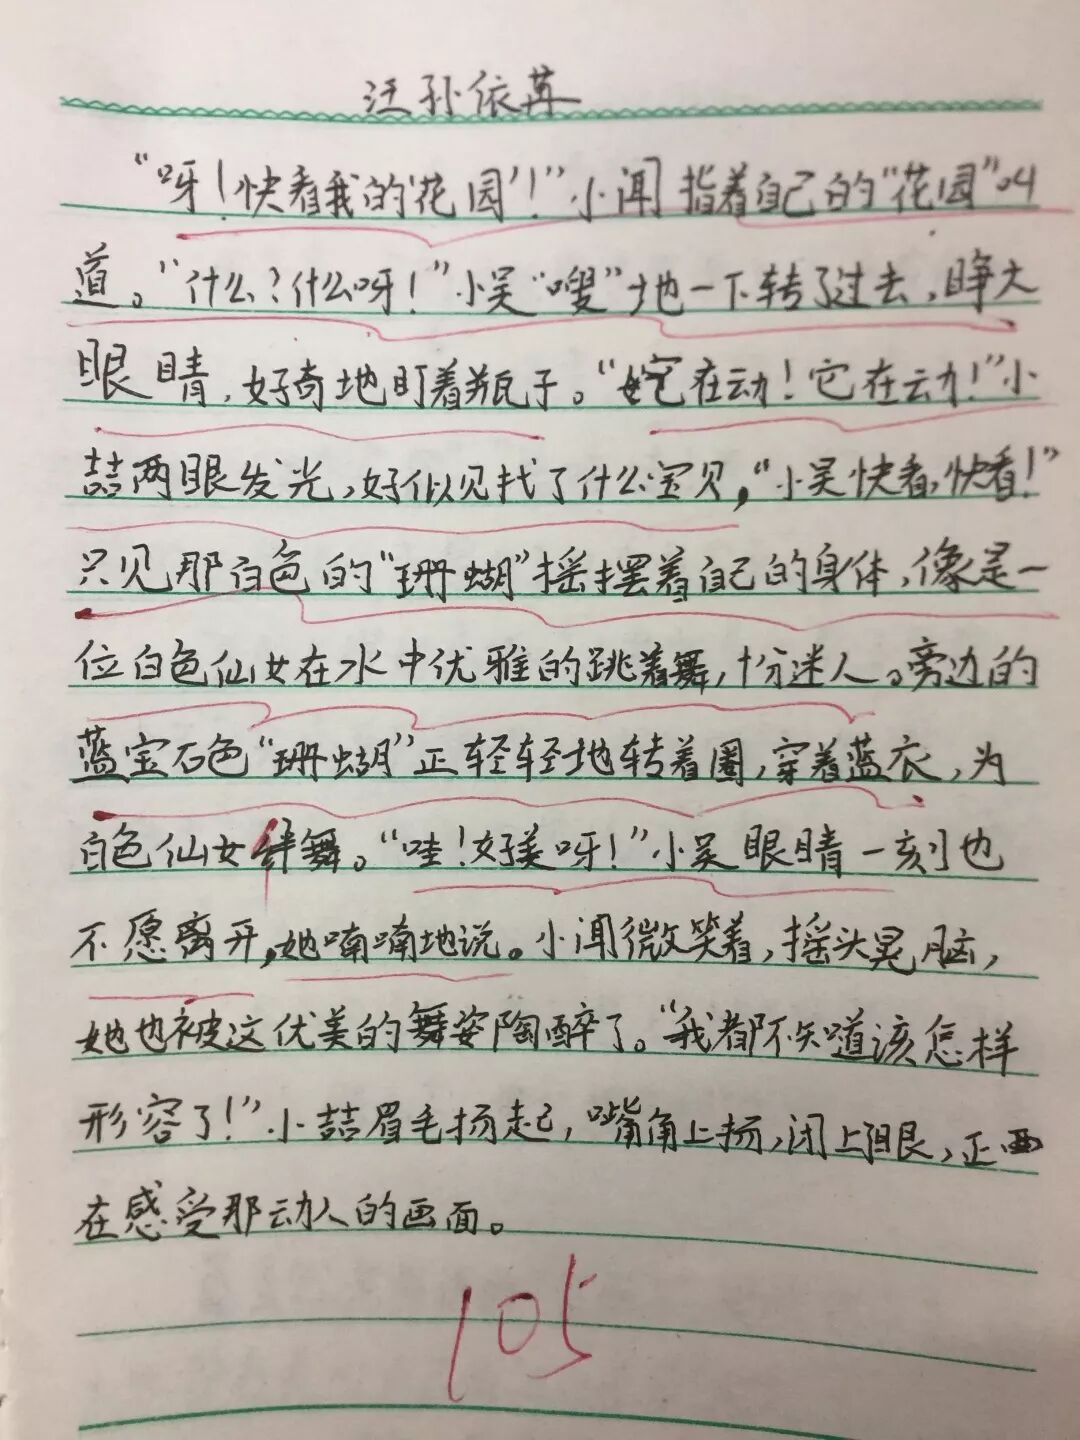 汪孙依苒
“呀！快看我的‘花园’！”小闻指着自己的“花园”叫
道。“什么？什么呀！”小吴“嗖”地一下转了过去，睁大
眼睛，好奇地盯着瓶子。“它在动！它在动！”小
喆两眼发光，好似见找了什么宝贝，“小吴快看，快看！”
只见那白色的“珊蝴”摇摆着自己的身体，像是一
位白色仙女在水中优雅的跳着舞，十分迷人。旁边的
蓝宝石色“珊蝴”正轻轻地转着圈，穿着蓝衣，为
白色仙女伴舞。“哇！好美呀！”小吴眼睛一刻也
不愿离开，她喃喃地说。小闻微笑着，摇头晃脑，
她也被这优美的舞姿陶醉了。“我都不知道该怎样
形容了！”小喆眉毛扬起，嘴角上扬，闭上眼，正
在感受那动人的画面。
105